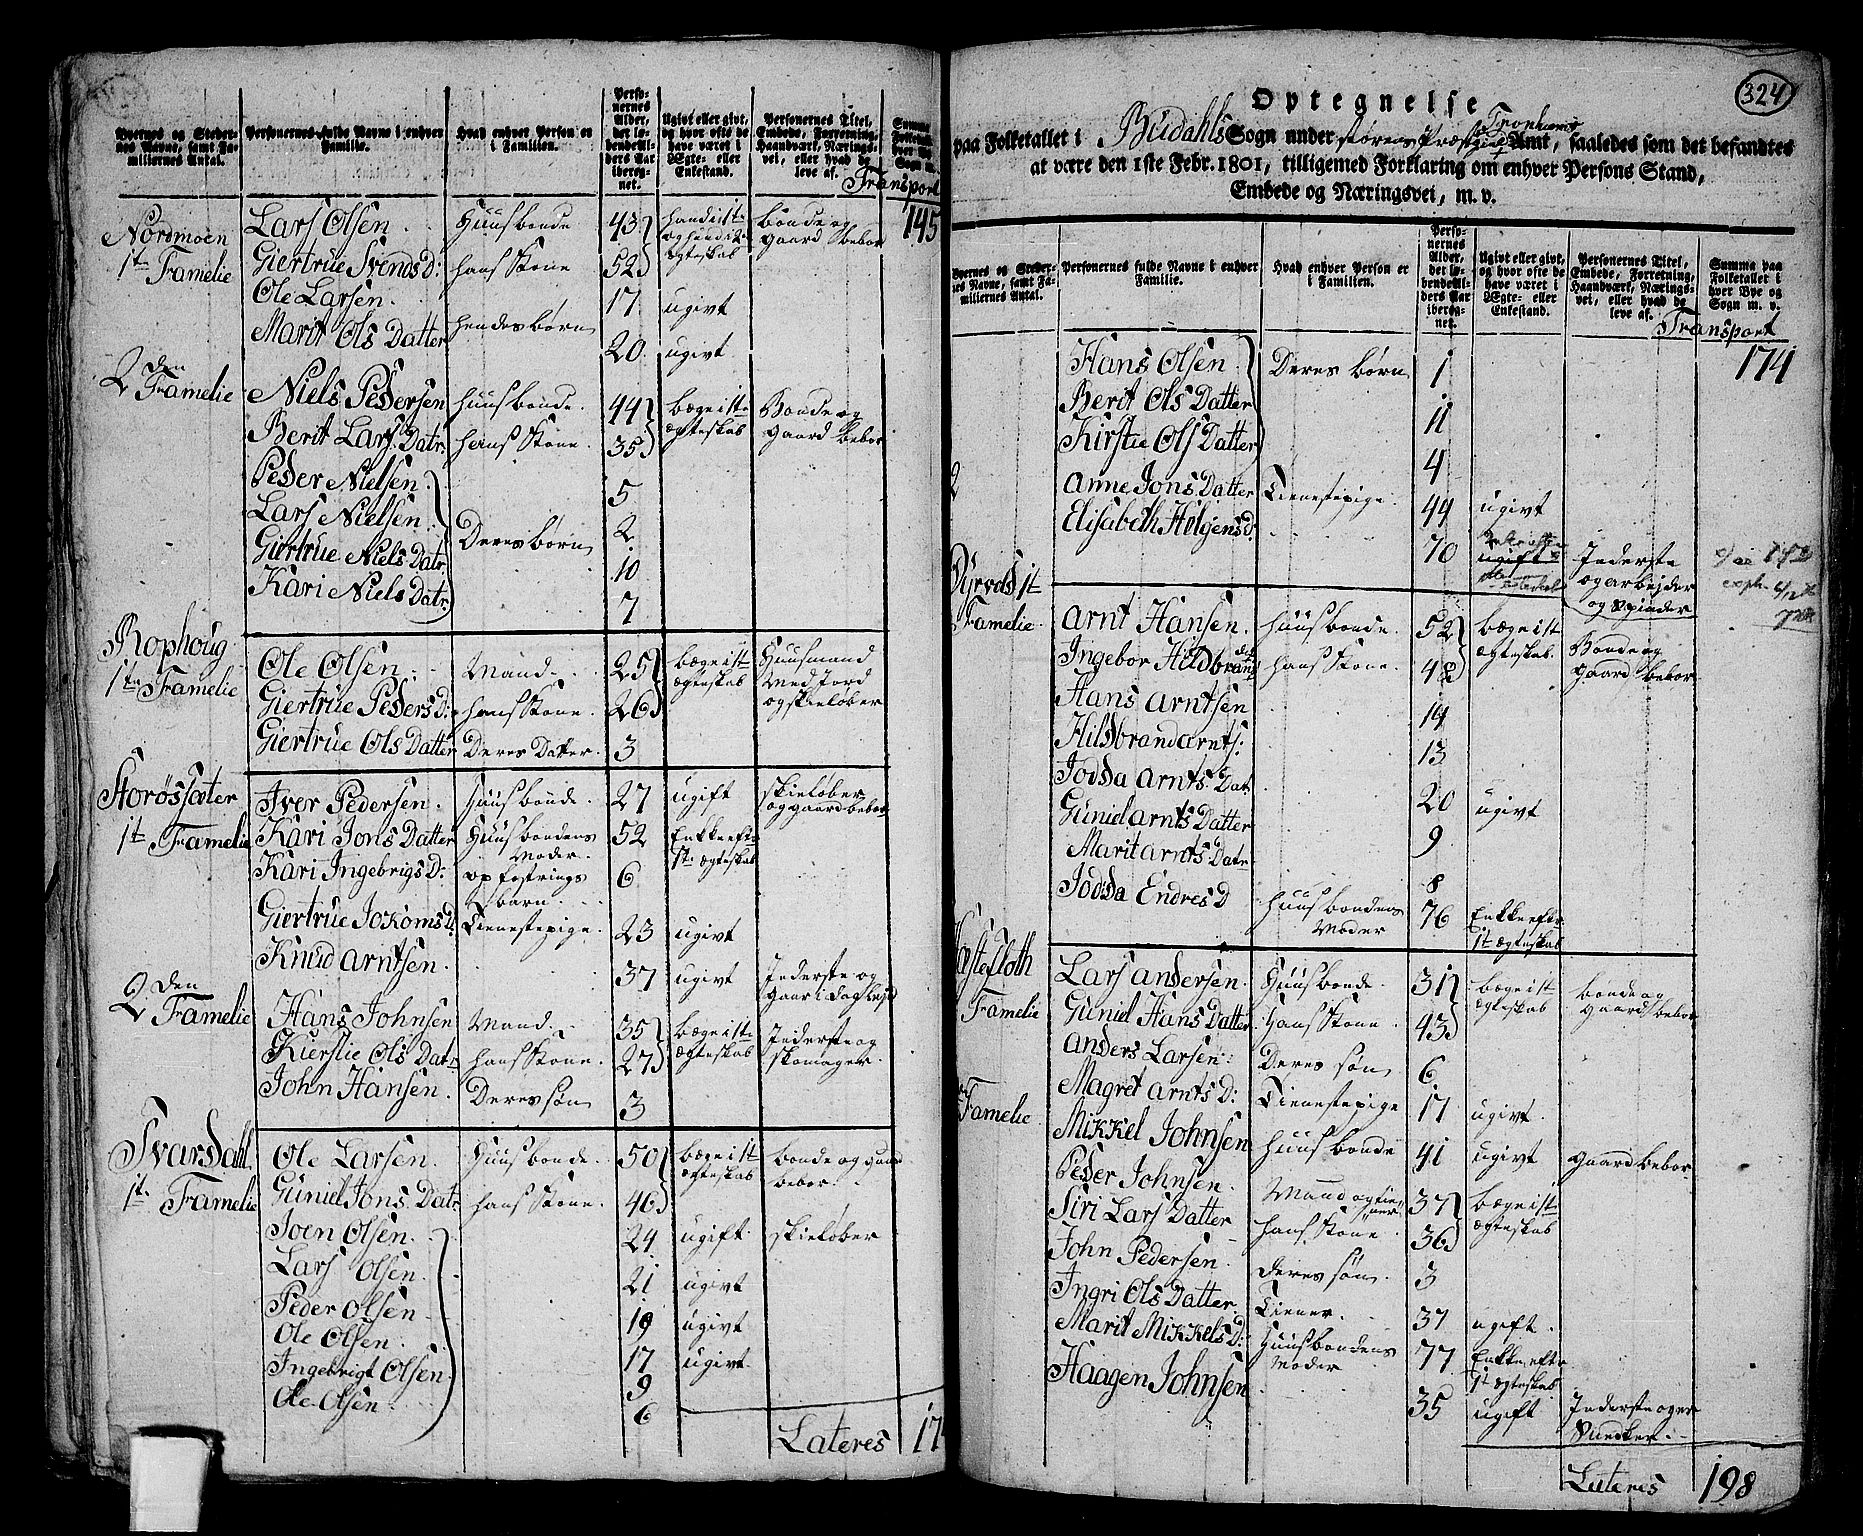 Byernes og Stedernes Navne, samt Familiernes Antal.
Personernes fulde Navne i enhver Familie.
Hvad enhver Person er i Familien.
Personernes Alder, det løbende Alders Aar iberegnet.
Ugivt eller givt, og hvor ofte de have været i Ægte- eller Enkestand.
Personernes Titel, Embede, Forretning, Haandværk, Næringsvei, eller hvad de leve af.
Transport
145
Nordmoen
1te Familie
Lars Olsen Huusbonde 43 Bonde og Gaard Bebor
Giertrue Svends D: hans Kone 52
Ole Larsen 17 ugivt
Marit Ols Datter hendes børn 20 ugivt
2den Famelie
Niels Pedersen Huusbonde 44 bægge i 1te ægteskab Bonde og Gaard bebor
Berit Lars Datr: hans Kone 35
Peder Nielsen 5
Lars Nielsen 2
Giertrue Niels Datr Deres børn 10
Kari Niels Datr: 7
Rophoug
1te Famelie
Ole Olsen Mand 25 bægge i 1te ægteskab Huusmand Med Jord og skieløber
Giertrue Peders D: hans Kone 26
Giertrue Ols Datter Deres Datter 3
Storøssæter
1te Famelie
Iver Pedersen Huusbonde 27 ugift skieløber og gaard bebor
Kari Jons Datter Huusbondens Moder 52 Enke efter 1te ægteskab
Kari Ingebrigs D: opfostrings barn 6
Giertrue Jokoms D: Tienestepige 23 ugivt
Knud Arntsen 37 ugivt Inderste og
2den Famelie
Hans Johnsen Mand 35 bægge i 1te ægteskab Inderste og skomager
Kierstie Ols Datr hans Kone 27
John Hansen Deres søn 3
Svardahl
1te Famelie
Ole Larsen Huusbonde 50 bægge i 1te ægteskab bonde og Gaard bebor
Guniel Jons Datr hans Kone 46
Joen Olsen 24 ugift skieløber
Lars Olsen 21 ugivt
Peder Olsen 19 ugivt
Ole Olsen 17 ugivt
Ingebrigt Olsen 9
Ole Olsen 6
Lateres 17
324
Optegnelse
paa Folketallet i Budahls Sogn under Størens Præstgield Tronhiems Amt, saaledes som det befandtes
at være den 1ste Febr. 1801, tilligemed Forklaring om enhver Persons Stand,
Embede og Næringsvei, m. v.
Byernes og Stedernes Navne, samt Familiernes Antal.
Personernes fulde Navne i enhver Familie.
Hvad enhver Person er i Familien.
Personernes Alder, det løbende Alders Aar iberegnet.
Ugivt eller givt, og hvor ofte de have været i Ægte- eller Enkestand.
Personernes Titel, Embede, Forretning, Haandværk, Næringsvei, eller hvad de leve af.
Summa paa Folketallet i hver Bye og Sogn m. v.
Transport
174
Hans Olsen Deres børn 1
Berit Ols Datter 11
Kirstie Ols Datter 4
2
Anne Jons Datter Tienestepige 44 ugivt
Elisabeth Helgens d: 70 ugift Inderste og arbejder og Spinder
Dyrvds 1te
Famelie
Arnt Hansen Huusbonde 52 bægge i 1te ægteskab Bonde og Gaard bebor
Ingebor Hildbrans dat hans Kone 48
Hans Arntsen 14
Hildbrand Arnts: 13
Jodda Arnts Dat 20 ugivt
Guniel Arnts Datter 9
Marit Arnts Datr 8
Jodda Endres D Huusbondens Moder 76 Enke efter 1te ægteskab
Famelie
Lars Andersen Huusbonde 31 bægge i 1te ægteskab bonde og Gaard bebor
Guniel Hans Datter Hans Kone 43
Anders Larsen Deres søn 6
Magret Arnts D: Tienestepige 17 ugivt
Famelie
Mikkel Johnsen Huusbonde 41 ugivt Gaard bebor
Peder Johnsen Mand og tiener 37 bægge i 1te ægteskab
Siri Lars Datter hans Kone 36
John Pedersen deres søn 3
Ingri Ols Datter Tiener 37 ugift
Marit Mikkels D: Huusbondens Moder 77 Enke efter 1te ægteskab
Haagen Johnsen 35 ugift Inderste og Snedker
Lateres 198